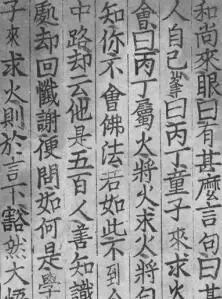 和尚來眼曰有甚麼言句曰某
人自己峯曰丙丁童子來求火
會曰丙丁屬火將火求火將自
知你不會佛法若如此不到今
中路却云他是五百人善知識
處却回懺謝便問如何是學
子來求火則於言下豁然大悟